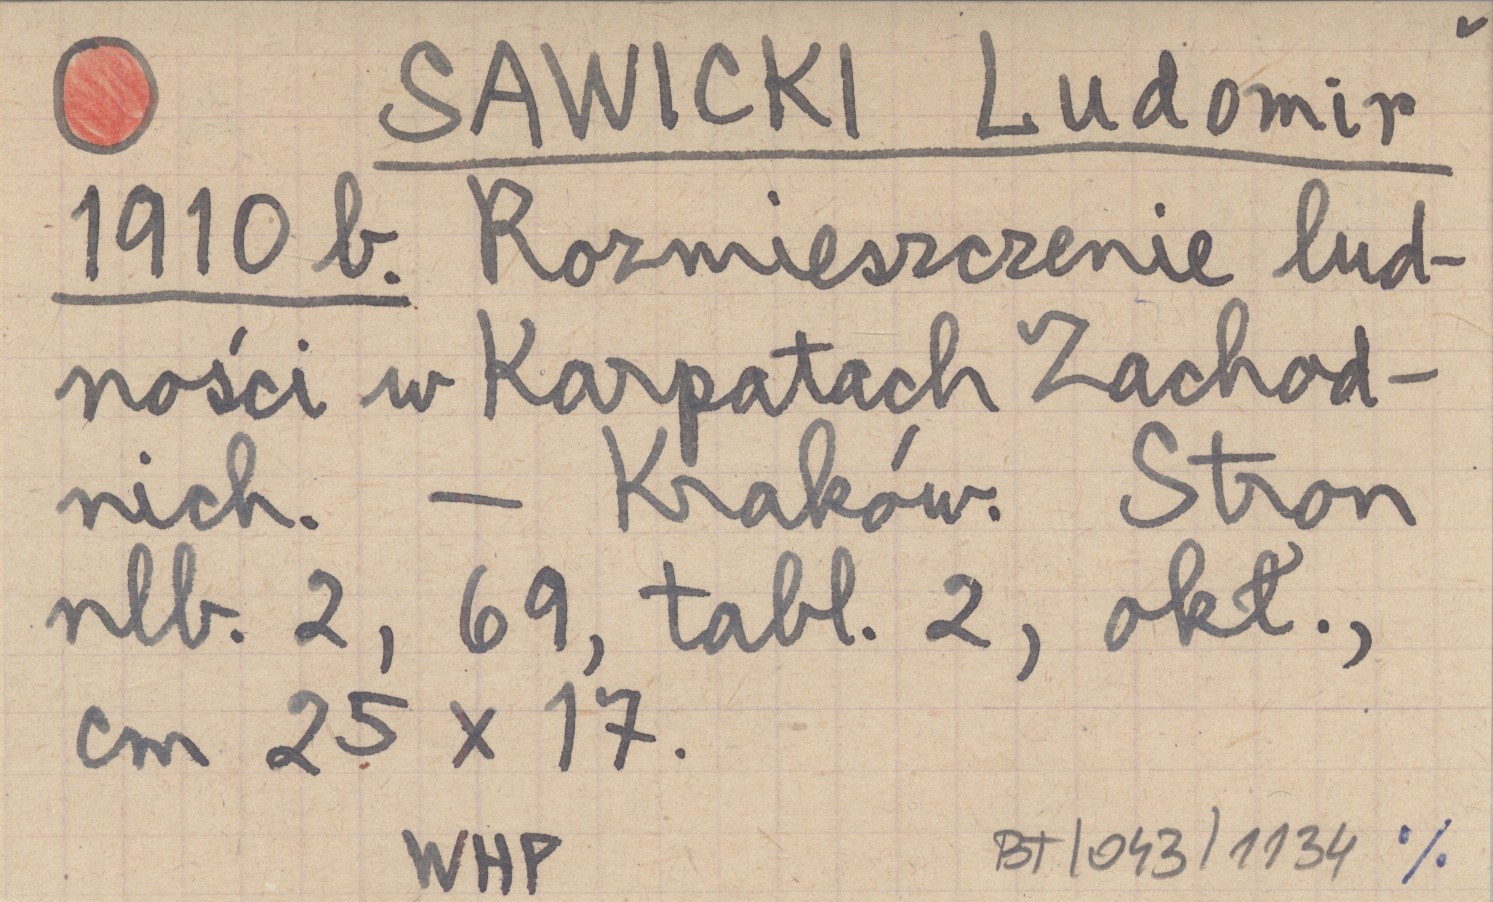 SAWICKI Ludomir
1910 b. Rozmieszczenie lud-
ności w Karpatach Zachod-
nich. — Kraków. Stron
nlb. 2, 69, tabl. 2, okł.,
cm 25 x 17.
WHP
BT/043/1134 %